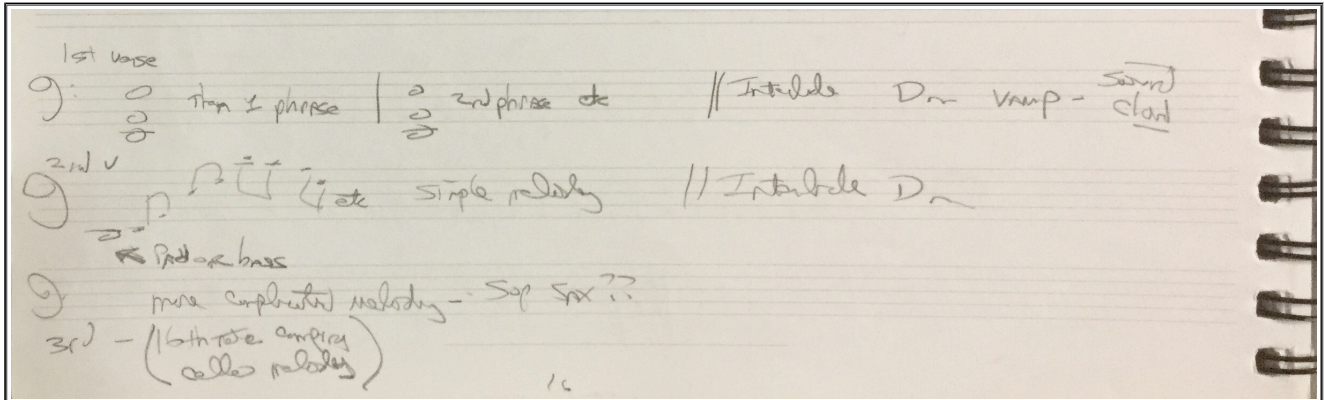 1st verse
then 1 phrase | 2nd phrase etc // Interlude Dm vamp - sound
cloud
2nd v
etc simple melody // Interlude Dm
Pad or bass
more complicated melody - Sop Sax??
3rd - (16th note comping
cello melody)
16